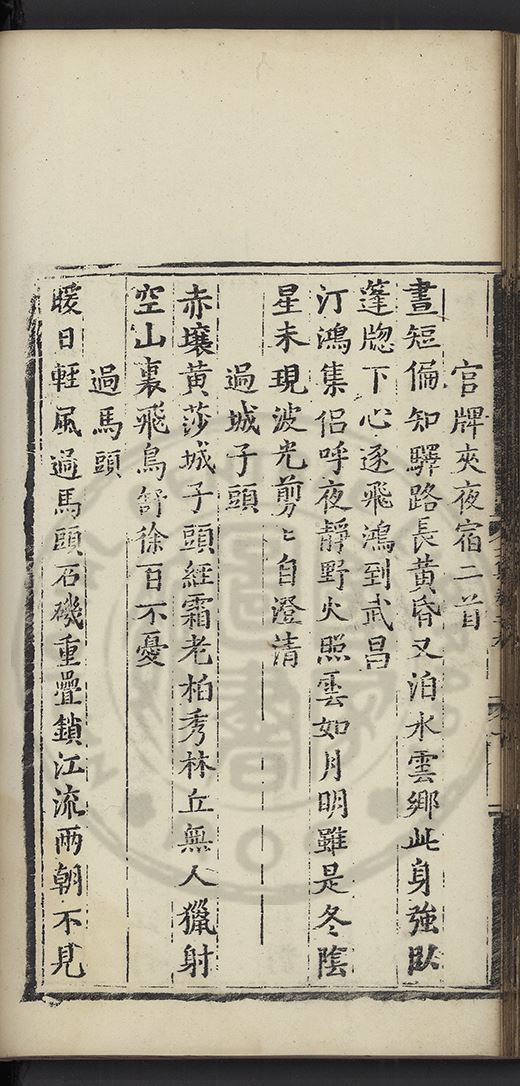 官牌夾夜宿二首
晝短偏知驛路長黃昏又泊水雲鄉此身強臥
蓬牎下心逐飛鴻到武昌
汀鴻集侣呼夜靜野火照雲如月明雖是冬陰
星未現波光剪〻自澄清
過城子頭
赤壤黃莎城子頭經霜老柏秀林丘無人獵射
空山裏飛鳥舒徐百不憂
過馬頭
暖日輕風過馬頭石磯重疊鎖江流兩朝不見